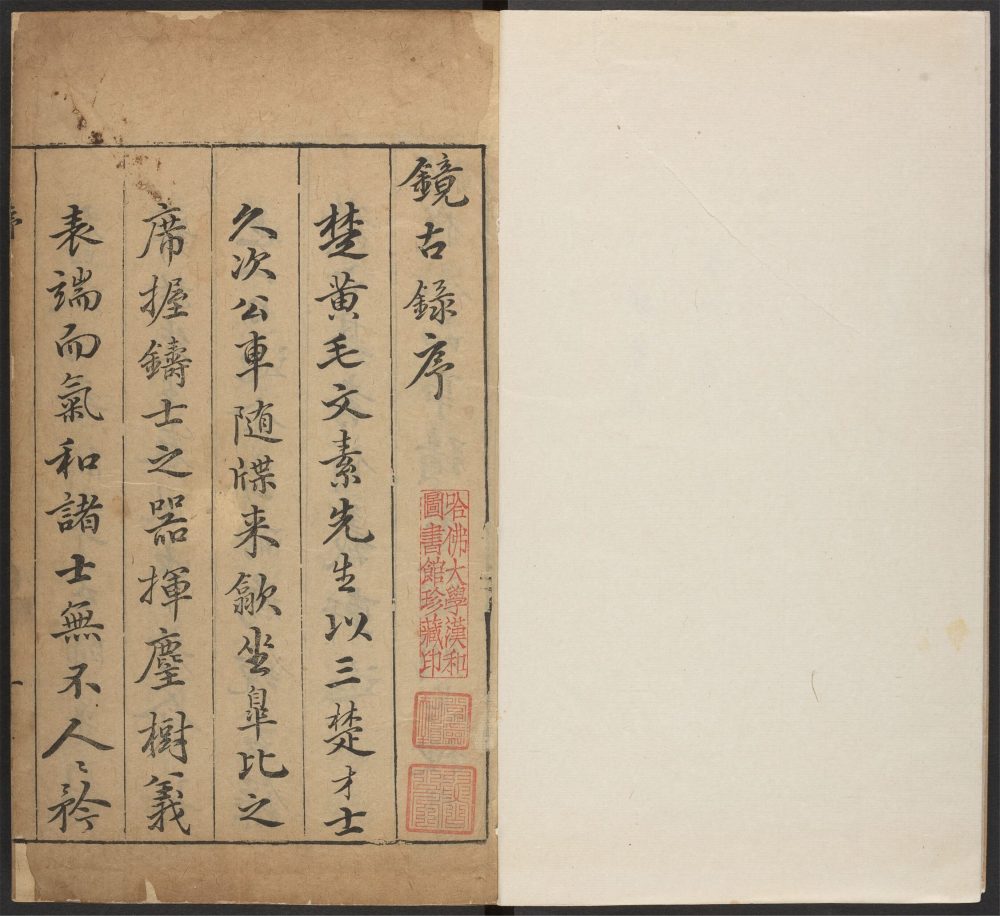 鏡古録序
楚黄毛文素先生以三楚才士
久次公車随牒来歙坐皐比之
席握鑄士之器揮麈樹義
表端而氣和諸士無不人〻矜
哈佛大學漢和
圖書館珍藏印